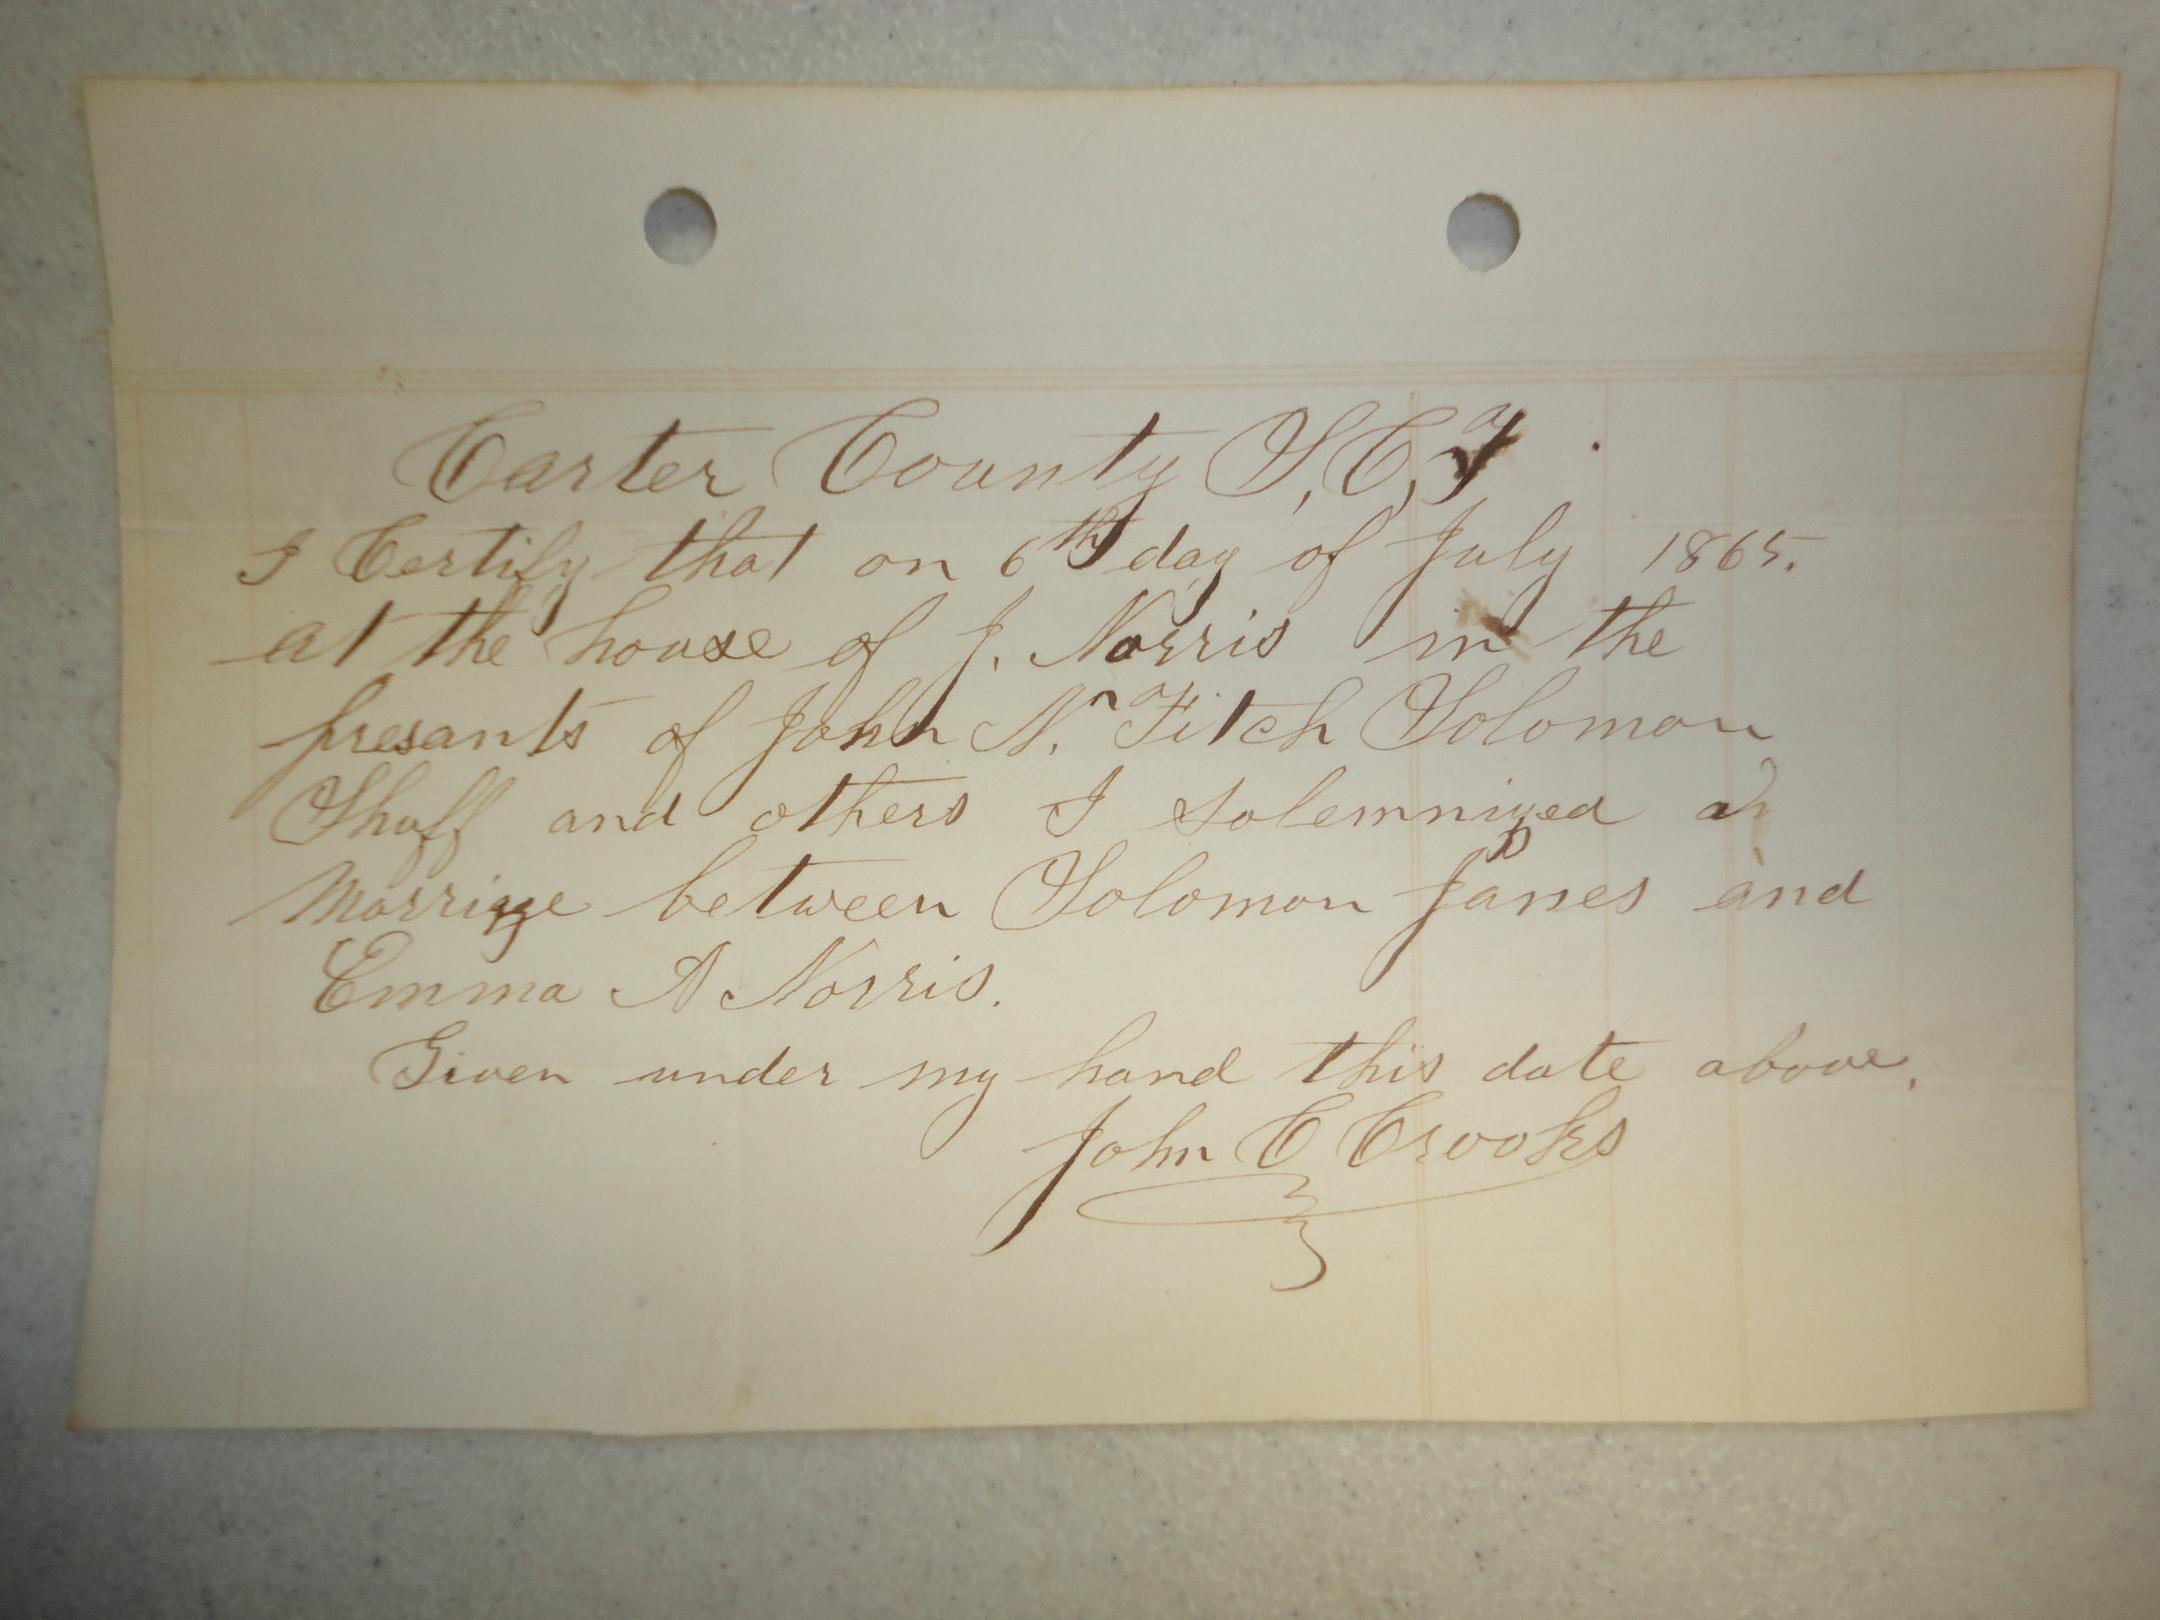 Carter County S, C, T
I Certify that on 6th day of July 1865.
at the house of J. Norris in the
presants of John N. Fitch Solomon
Shuff and others I solemnized a
Marrigge between Solomon Janes and
Emma A Norris.
Given under my hand this date above,
John C Crooks